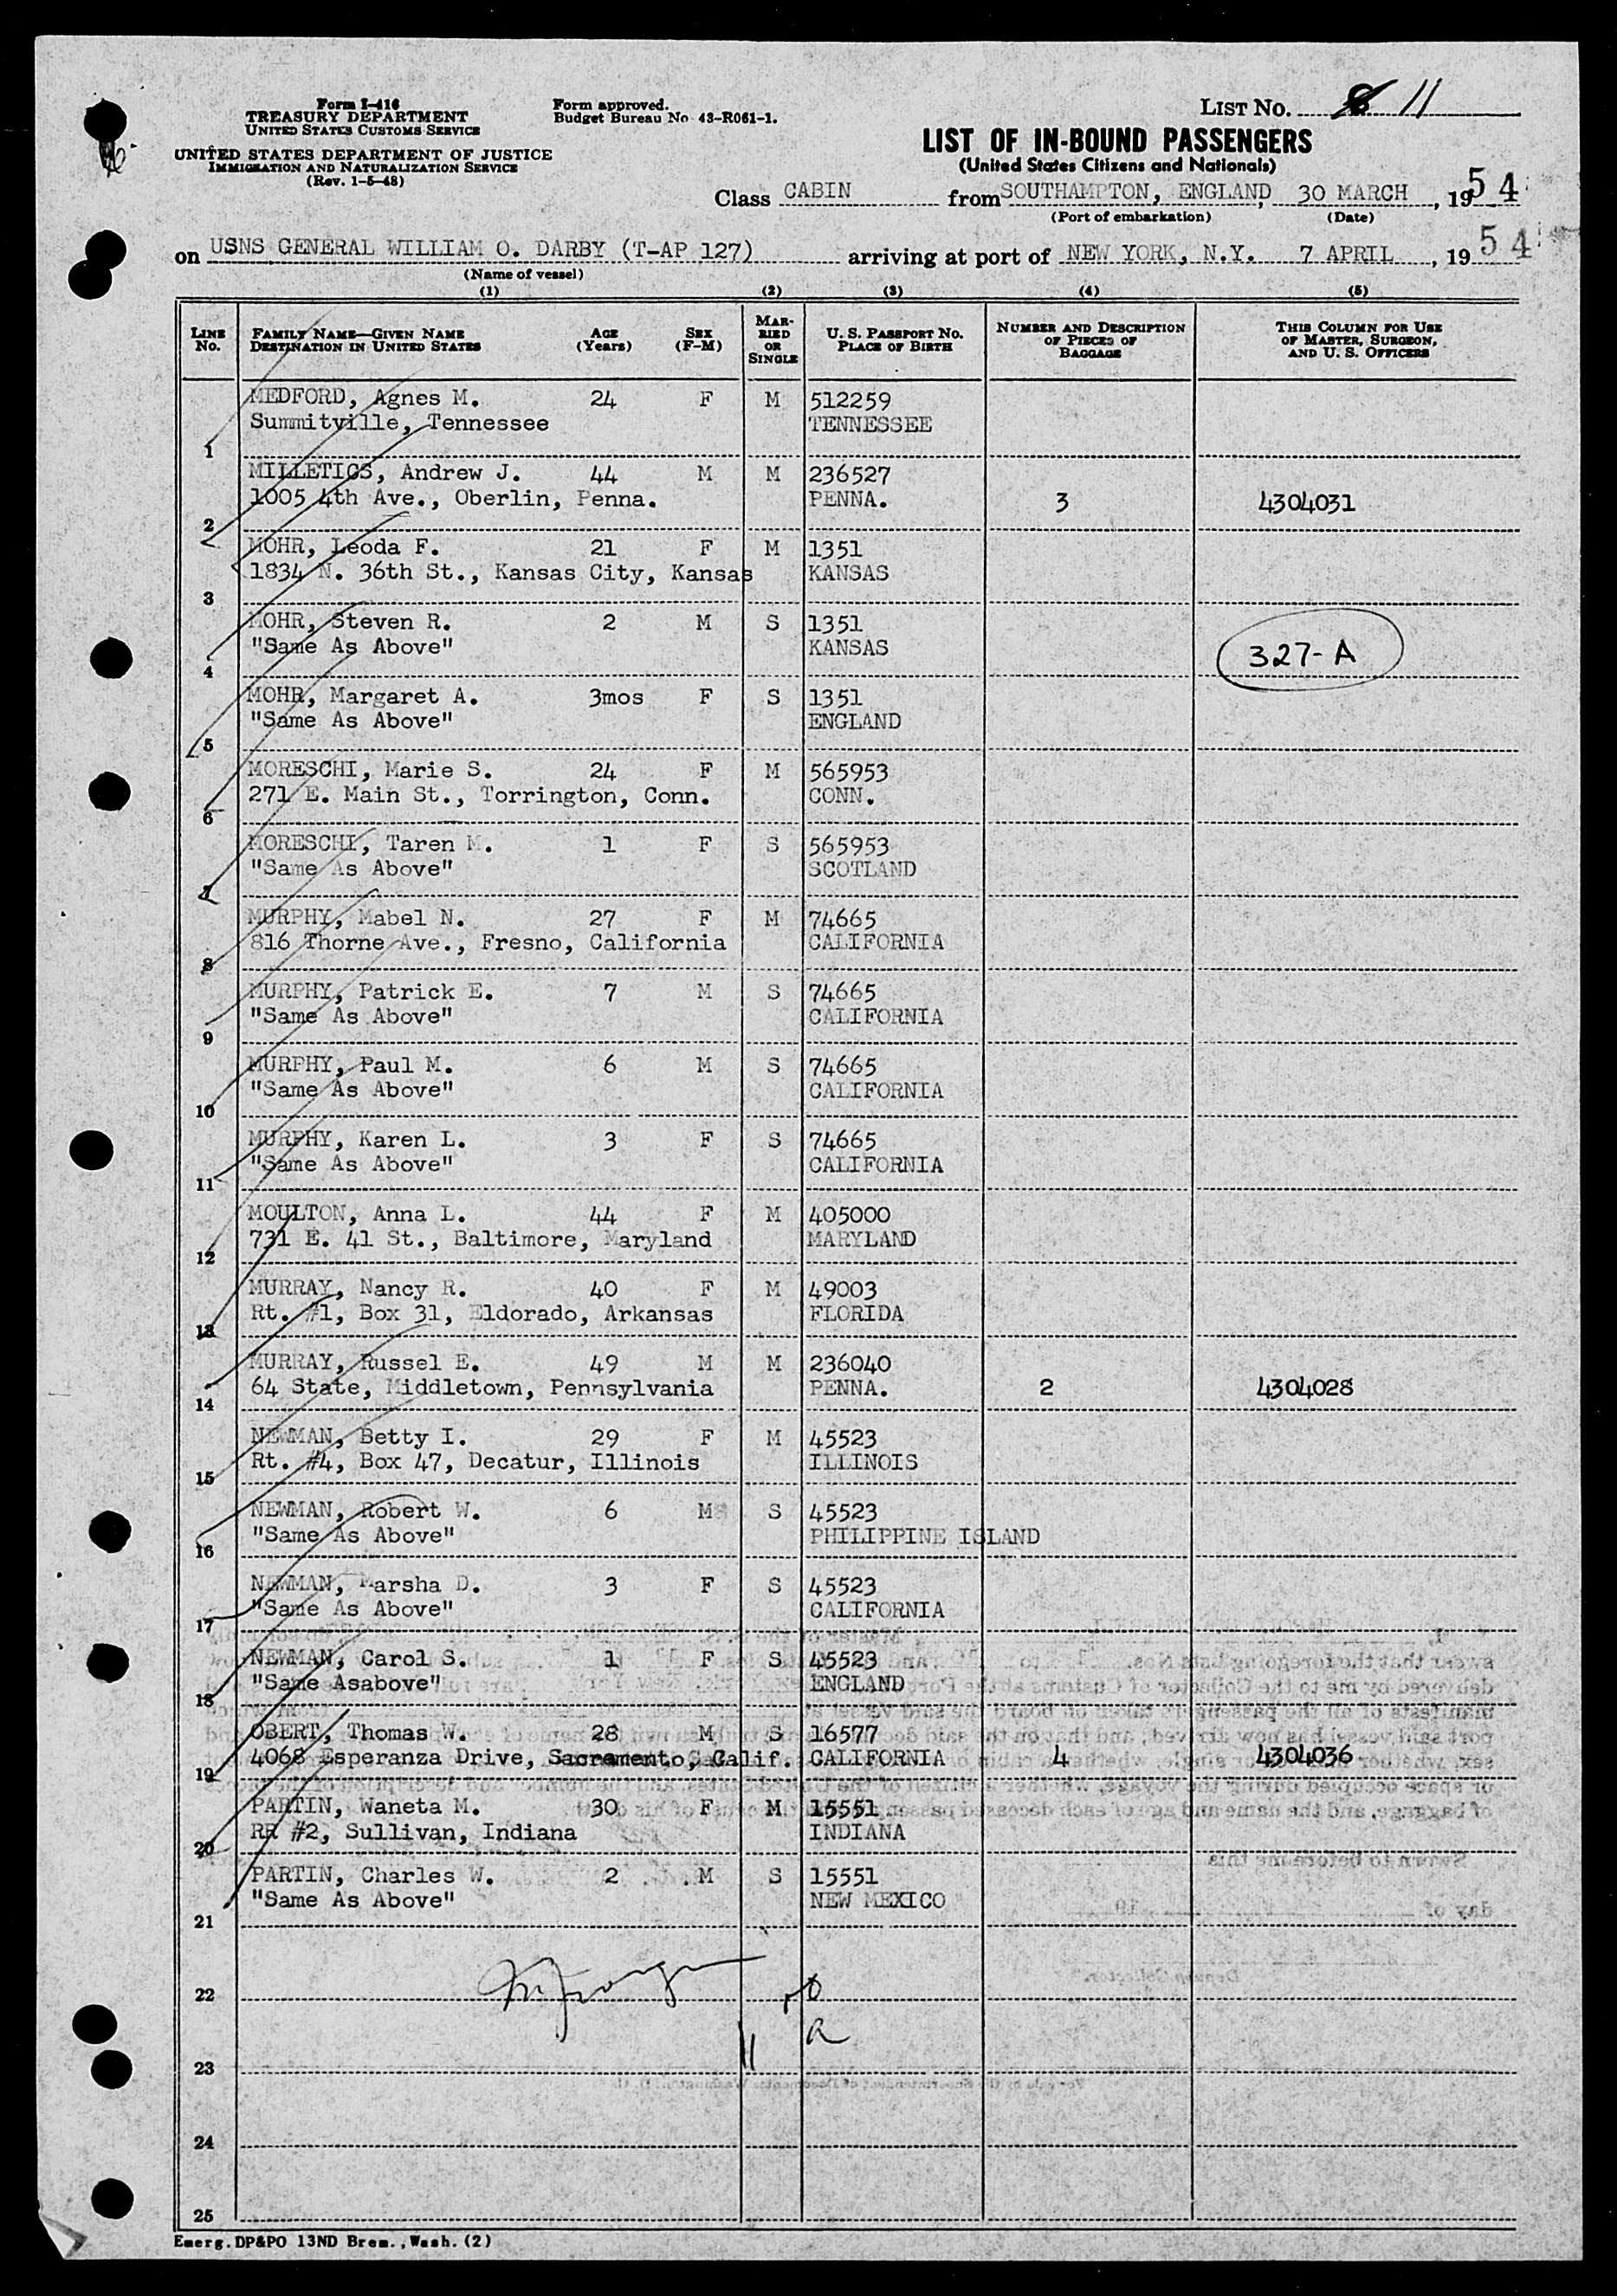 Form I-416
TREASURY DEPARTMENT
UNITED STATES CUSTOMS SERVICE
UNITED STATES DEPARTMENT OF JUSTICE
IMMIGRATION AND NATURALIZATION SERVICE
(Rev. 1-5-48)
Form approved.
Budget Bureau No 43-R061-1.
LIST No. 11
LIST OF IN-BOUND PASSENGERS
(United States Citizens and Nationals)
Class CABIN from SOUTHAMPTON, ENGLAND, 30 MARCH, 1954
(Port of embarkation) (Date)
on USNS GENERAL WILLIAM O. DARBY (T-AP 127) arriving at port of NEW YORK, N.Y. 7 APRIL, 1954
(Name of vessel)
(1) (2) (3) (4) (5)
LINE No. FAMILY NAME—GIVEN NAME DESTINATION IN UNITED STATES AGE (Years) SEX (F-M) MARRIED OR SINGLE U. S. PASSPORT NO. PLACE OF BIRTH NUMBER AND DESCRIPTION OF PIECES OF BAGGAGE THIS COLUMN FOR USE OF MASTER, SURGEON, AND U. S. OFFICERS
MEDFORD, Agnes M. 24 F M 512259
Summityille, Tennessee TENNESSEE
1
MILLETICS, Andrew J. 44 M M 236527
1005 4th Ave., Oberlin, Penna. PENNA. 3 4304031
2
MOHR, Leoda F. 21 F M 1351
1834 N. 36th St., Kansas City, Kansas KANSAS
3
MOHR, Steven R. 2 M S 1351
"Same As Above" KANSAS 327-A
4
MOHR, Margaret A. 3mos F S 1351
"Same As Above" ENGLAND
5
MORESCHI, Marie S. 24 F M 565953
271 E. Main St., Torrington, Conn. CONN.
6
MORESCHI, Taren M. 1 F S 565953
"Same As Above" SCOTLAND
7
MURPHY, Mabel N. 27 F M 74665
816 Thorne Ave., Fresno, California CALIFORNIA
8
MURPHY, Patrick E. 7 M S 74665
"Same As Above" CALIFORNIA
9
MURPHY, Paul M. 6 M S 74665
"Same As Above" CALIFORNIA
10
MURPHY, Karen L. 3 F S 74665
"Same As Above" CALIFORNIA
11
MOULTON, Anna L. 44 F M 405000
731 E. 41 St., Baltimore, Maryland MARYLAND
12
MURRAY, Nancy R. 40 F M 49003
Rt. #1, Box 31, Eldorado, Arkansas FLORIDA
13
MURRAY, Russel E. 49 M M 236040
64 State, Middletown, Pennsylvania PENNA. 2 4304028
14
NEWMAN, Betty I. 29 F M 45523
Rt. #4, Box 47, Decatur, Illinois ILLINOIS
15
NEWMAN, Robert W. 6 M S 45523
"Same As Above" PHILIPPINE ISLAND
16
NEWMAN, Marsha D. 3 F S 45523
"Same As Above" CALIFORNIA
17
NEWMAN, Carol S. 1 F S 45523
"Same Asabove" ENGLAND
18
OBERT, Thomas W. 28 M S 16577
4068 Esperanza Drive, Sacramento, Calif. CALIFORNIA 4 4304036
19
PARTIN, Waneta M. 30 F M 15551
RR #2, Sullivan, Indiana INDIANA
20
PARTIN, Charles W. 2 M S 15551
"Same As Above" NEW MEXICO
21
22
23
24
25
Emerg. DP&PO 13ND Brem., Wash. (2)